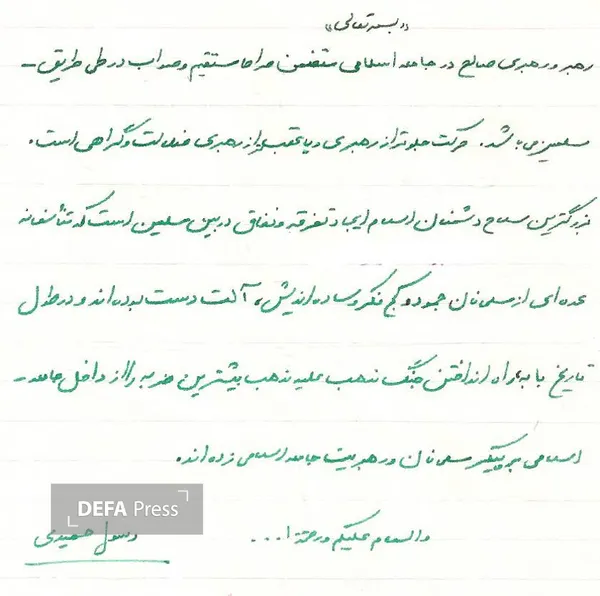 «بسمه تعالی»
رهبر و رهبری صالح در جامعه اسلامی متضمن صراط مستقیم و صواب در طی طریق -
مسلمین می باشد. حرکت جلوتر از رهبری و یا عقب تر از رهبری ضلالت و گمراهی است.
بزرگترین سلاح دشمنان اسلام ایجاد تفرقه و نفاق در بین مسلمین است که متأسفانه
عده ای از مسلمانان جمود و کج فکر و ساده اندیش، آلت دست بوده اند و در طول
تاریخ با به راه انداختن جنگ مذهب علیه مذهب بیشترین ضربه را از داخل جامعه -
اسلامی بر پیکر مسلمانان و رهبریت جامعه اسلامی زده اند.
والسلام علیکم و رحمة ا...
رسول حیدری
DEFA Press